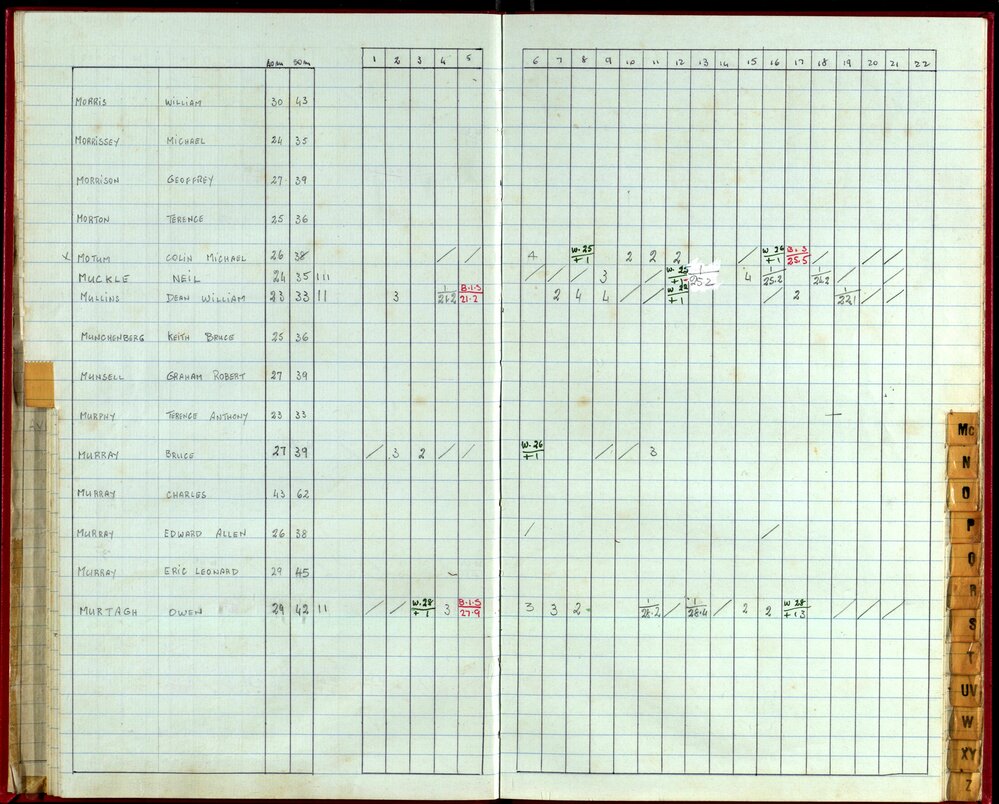 40m 50m 1 2 3 4 5 6 7 8 9 10 11 12 13 14 15 16 17 18 19 20 21 22
MORRIS WILLIAM 30 43
MORRISSEY MICHAEL 24 35
MORRISON GEOFFREY 27 39
MORTON TERENCE 25 36
X MOTUM COLIN MICHAEL 26 38 / / 4 W.25/+1 2 2 2 / W.26/+1 B.3/25.5 / /
MUCKLE NEIL 24 35 111 / / / 3 / / W.25/+1 1/25.2 4 1/25.2 / 1/24.2 / / /
MULLINS DEAN WILLIAM 23 33 11 3 1/21.2 B.1.5/21.2 2 4 4 / / W.22/+1 / 2 1/22.1 / /
MUNCHENBERG KEITH BRUCE 25 36
MUNSELL GRAHAM ROBERT 27 39
MURPHY TERENCE ANTHONY 23 33
MURRAY BRUCE 27 39 / 3 2 / / W.26/+1 / / 3
MURRAY CHARLES 43 62
MURRAY EDWARD ALLEN 26 38 / /
MURRAY ERIC LEONARD 29 45
MURTAGH OWEN 29 42 11 / / W.28/+1 3 B.1.5/27.9 3 3 2 1/28.2 / 1/28.4 / 2 2 W.28/+1.3 / / / /
Mc
N
O
P
Q
R
S
T
UV
W
XY
Z